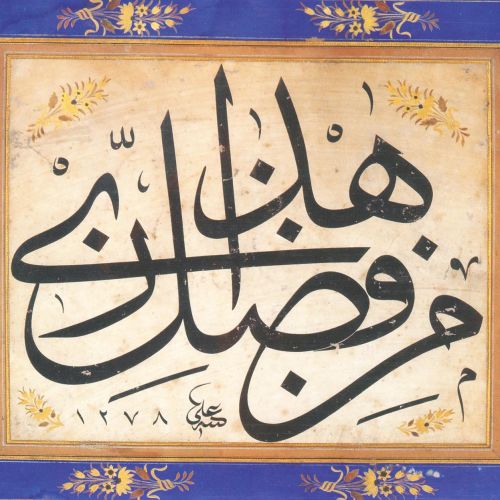 هذا من فضل ربي
علي ١٢٧٨